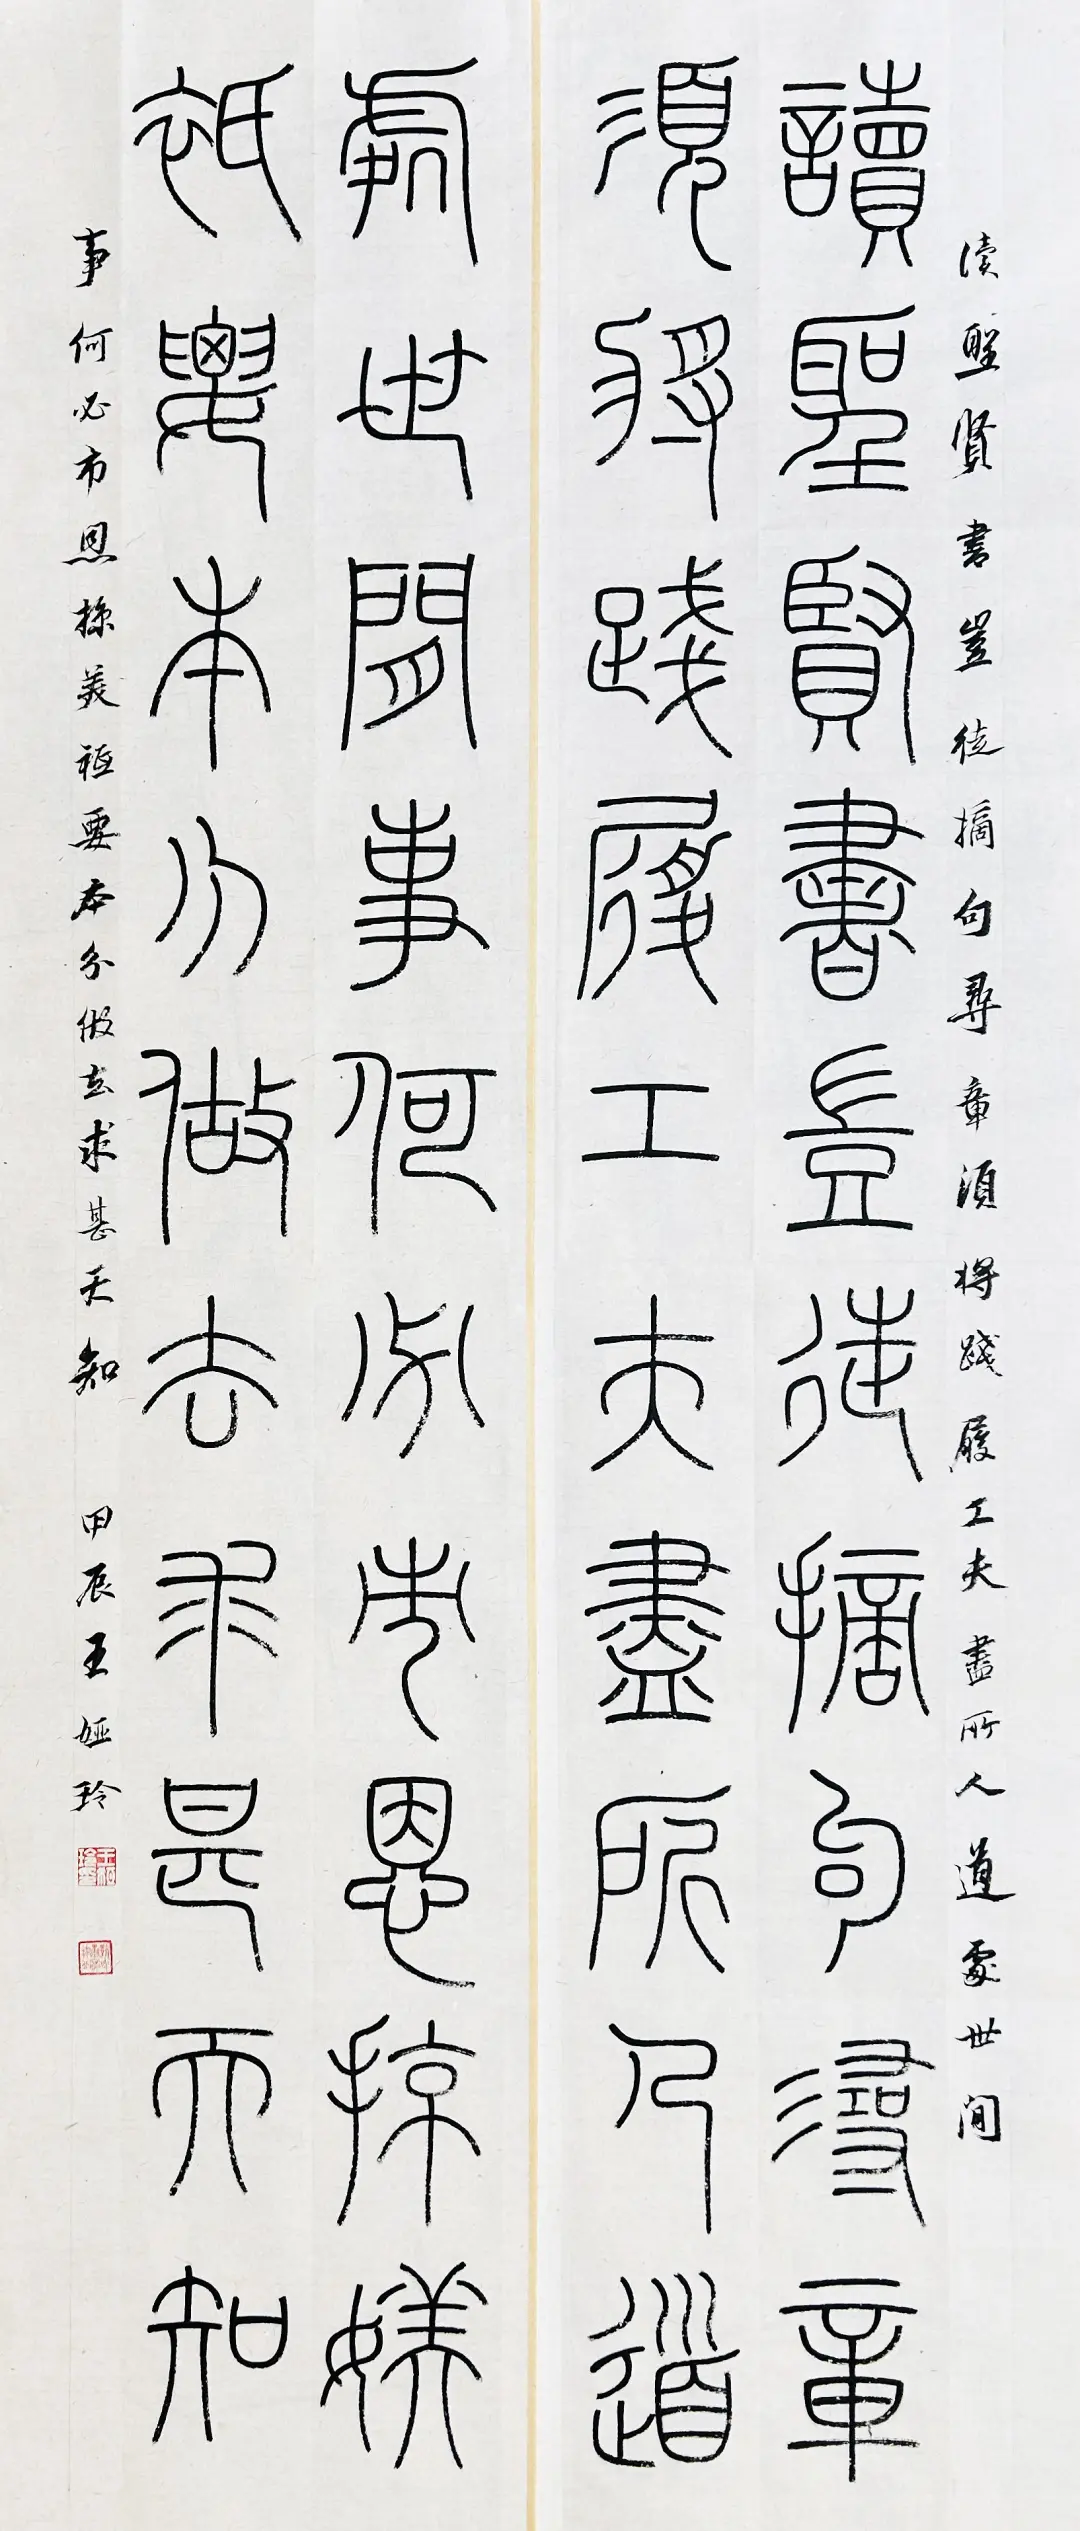 读聖贤書豈徒摘句尋章须将踐履工夫盡所人道處世间
讀聖賢書豈徒摘句尋章
須將踐履工夫盡所人道
處世間事何必市恩掠媄
衹要本分做去求甚天知
事何必市恩掠美祗要本分做去求甚天知 甲辰王娅玲